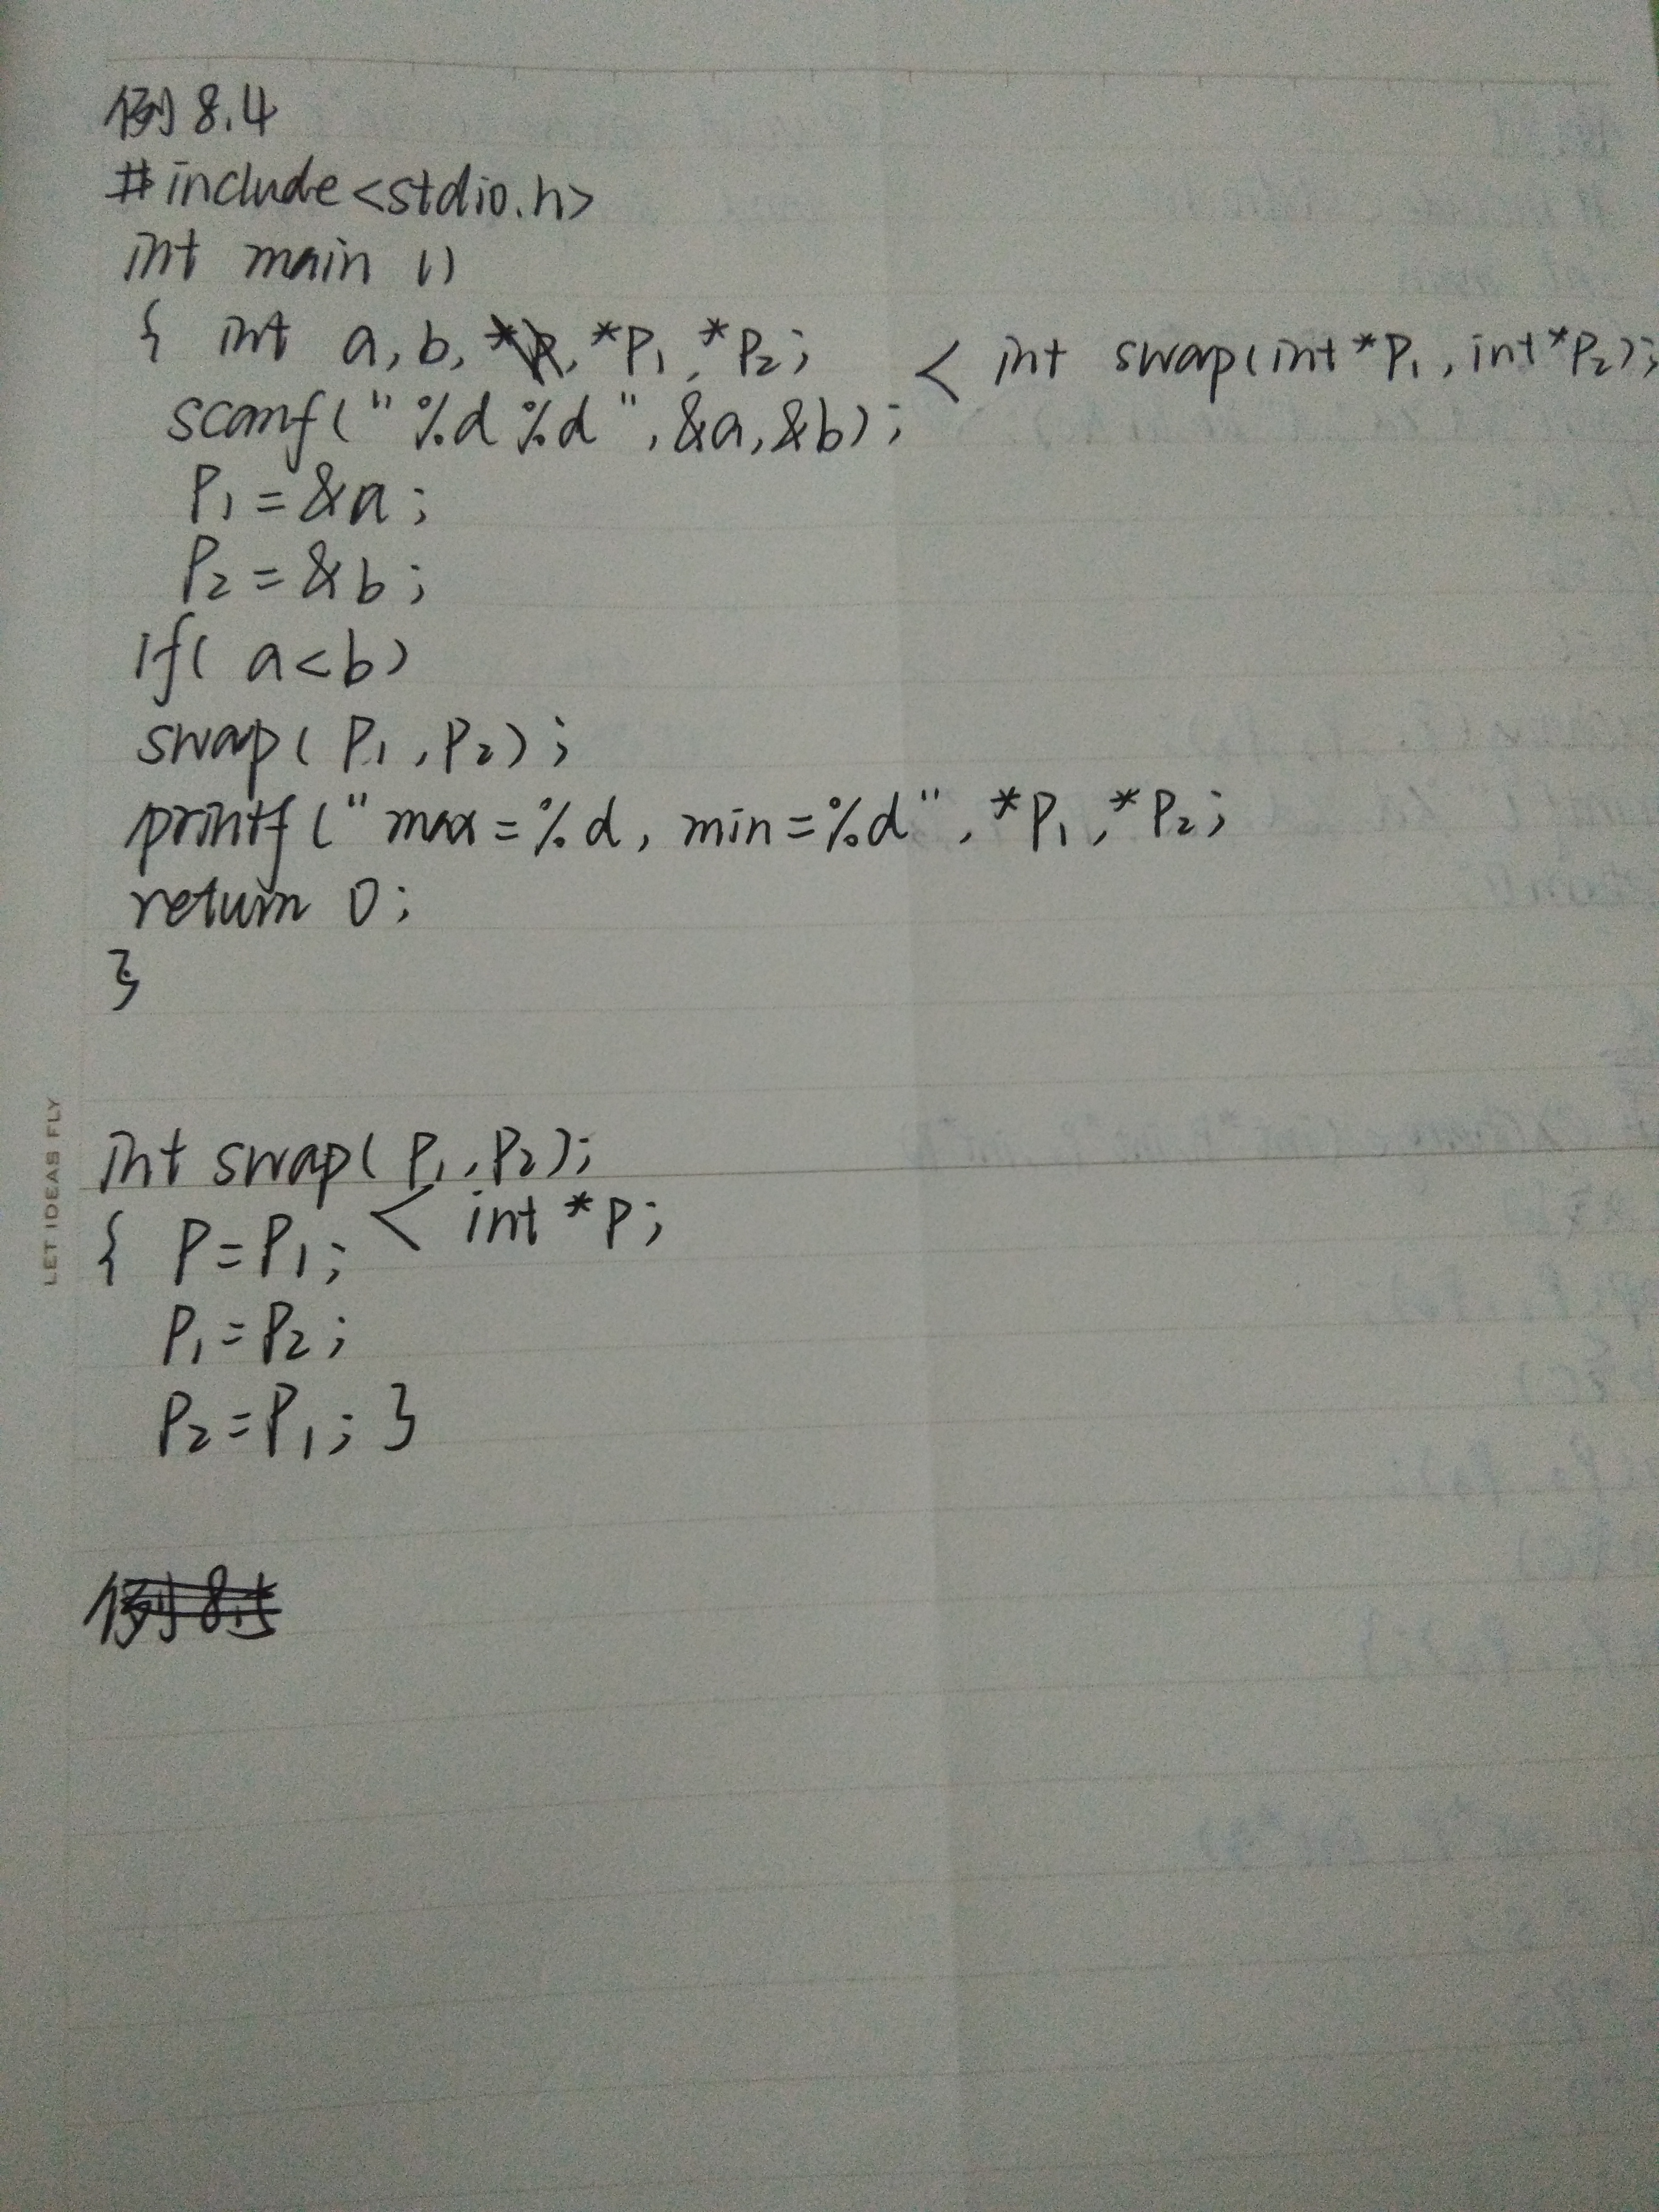 例 8.4
#include<stdio.h>
int main ()
{ int a, b, *p1, *p2; < int swap(int *p1, int *p2);
scanf("%d %d", &a, &b);
p1 = &a;
p2 = &b;
if( a<b)
swap( p1, p2);
printf("max=%d, min=%d", *p1, *p2;
return 0;
}
int swap( p1, p2);
{ p=p1; < int *p;
p1=p2;
p2=p1; }
LET IDEAS FLY